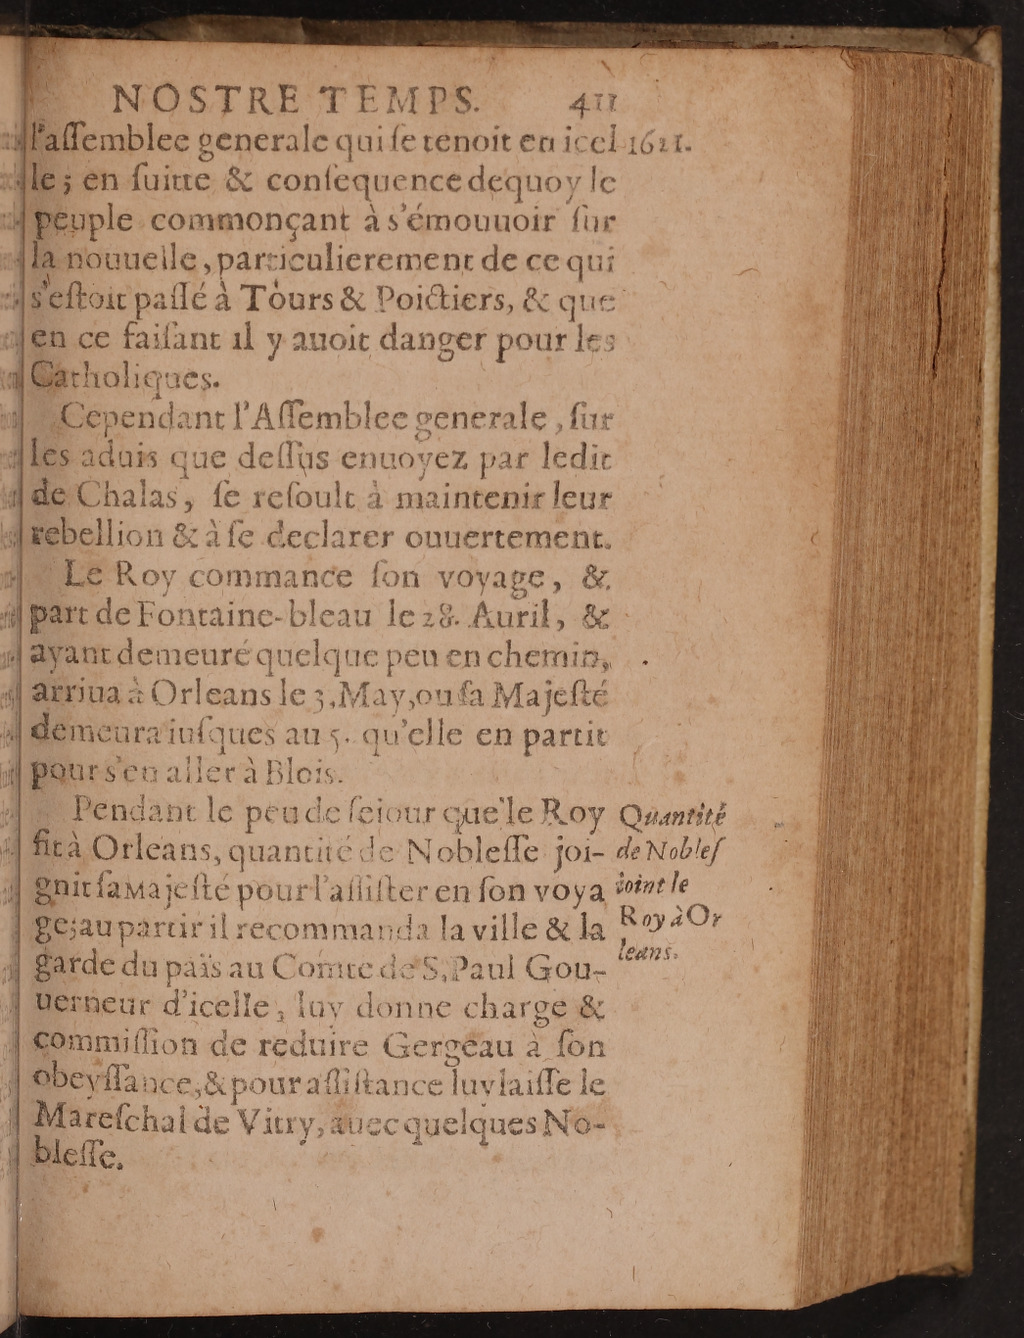 NOSTRE TEMPS. 411
l'assemblee generale qui se tenoit en icel 1621.
le; en suitte & consequence dequoy le
peuple commonçant à s'émouuoir sur
la nouuelle, particulierement de ce qui
s'estoit passé à Tours & Poictiers, & que
en ce faisant il y auoit danger pour les
Catholiques.
Cependant l'Assemblee generale, sur
les aduis que dessus enuoyez par ledit
de Chalas, se resoult à maintenir leur
rebellion & à se declarer ouuertement.
Le Roy commance son voyage, &
part de Fontaine-bleau le 28. Auril, &
ayant demeuré quelque peu en chemin,
arriua à Orleans le 3, May, ou sa Majesté
demeura iusques au 5. qu'elle en partit
pour s'en aller à Blois.
Pendant le peu de seiour que le Roy
fit à Orleans, quantité de Noblesse joi-
gnit sa Majesté pour l'assister en son voya
ge; au partir il recommanda la ville & la
garde du païs au Comte de S, Paul Gou-
uerneur d'icelle, luy donne charge &
commission de reduire Gergeau à son
obeyssance, & pour assistance luy laisse le
Mareschal de Vitry, auec quelques No-
blesse.
Quantité
de Noblef
ioint le
Roy à Or
leans.